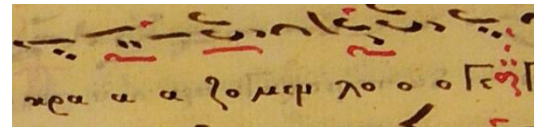 κρα α α ζο μεν λο ο ο Γε